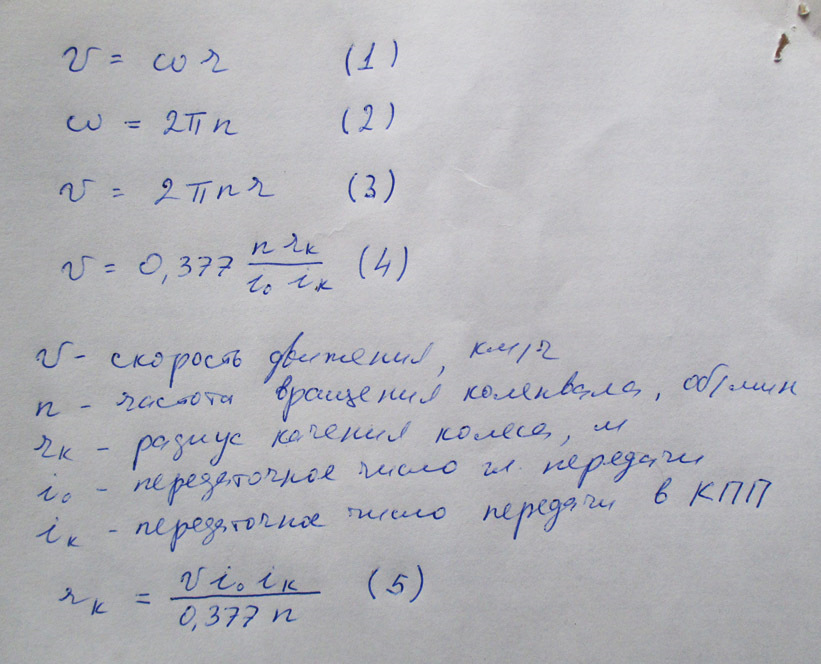 v = ωr (1)
ω = 2πn (2)
v = 2πnr (3)
v = 0,377 n rк / i₀ iк (4)
v - скорость движения, км/ч
n - частота вращения коленвала, об/мин
rк - радиус качения колеса, м
i₀ - передаточное число гл. передачи
iк - передаточное число передачи в КПП
rк = v i₀ iк / 0,377 n (5)